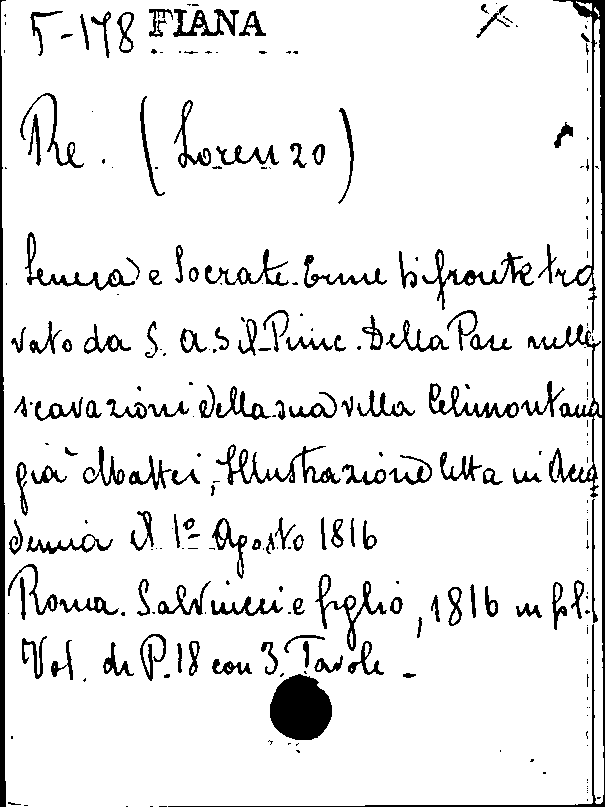 5-178 FIANA
Re. (Lorenzo)
Seneca e Socrate. Erme bifronte tro=
vato da S. A. S il Princ. Della Pace nelle
scavazioni della sua villa Celimontana
già Mattei, Illustrazione letta in Acca=
demia il 1º Agosto 1816
Roma. Salviucci e figlio, 1816 in fol.
Vol. di P. 18 con 3. Tavole -